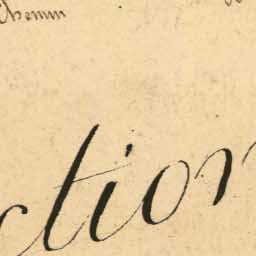 Chemin
ction